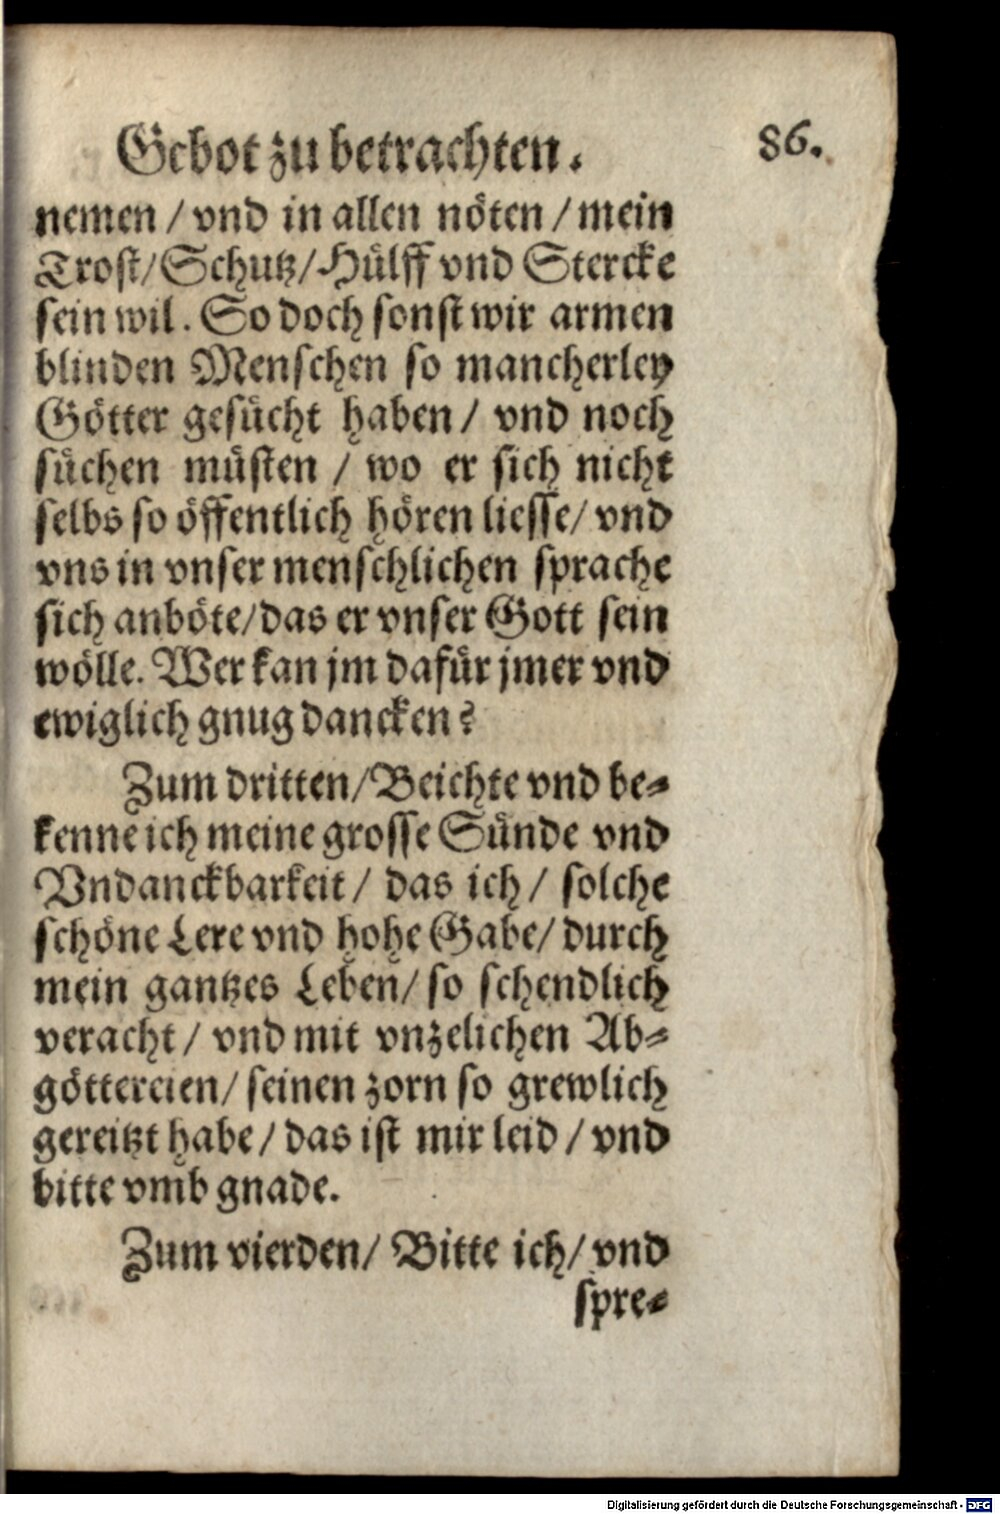 Gebot zu betrachten. 86.
nemen / vnd in allen nöten / mein
Trost / Schutz / Hülff vnd Stercke
sein wil. So doch sonst wir armen
blinden Menschen so mancherley
Götter gesücht haben / vnd noch
süchen müsten / wo er sich nicht
selbs so öffentlich hören liesse / vnd
vns in vnser menschlichen sprache
sich anböte / das er vnser Gott sein
wölle. Wer kan jm dafür jmer vnd
ewiglich gnug dancken?
Zum dritten / Beichte vnd be-
kenne ich meine grosse Sünde vnd
Vndanckbarkeit / das ich / solche
schöne Lere vnd hohe Gabe / durch
mein gantzes Leben / so schendlich
veracht / vnd mit vnzelichen Ab-
göttereien / seinen zorn so grewlich
gereitzt habe / das ist mir leid / vnd
bitte vmb gnade.
Zum vierden / Bitte ich / vnd
spre-
Digitalisierung gefördert durch die Deutsche Forschungsgemeinschaft - DFG